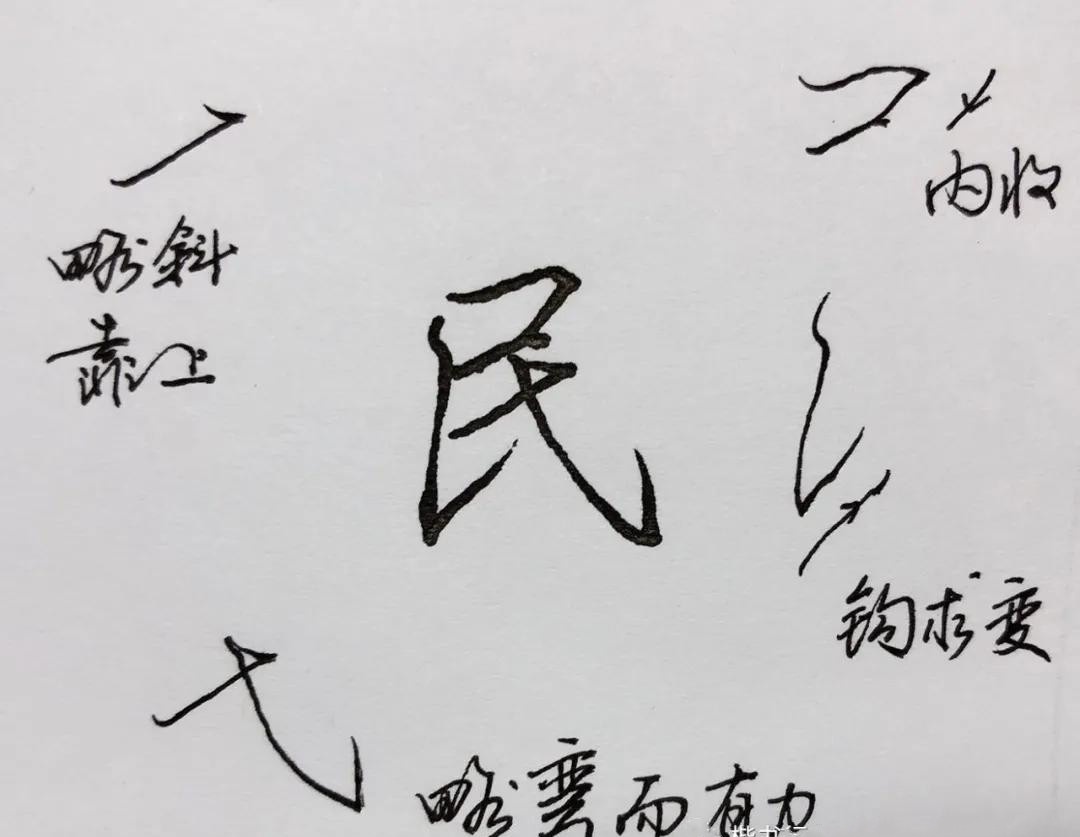 内收
略斜
靠上
民
钩求变
略弯而有力